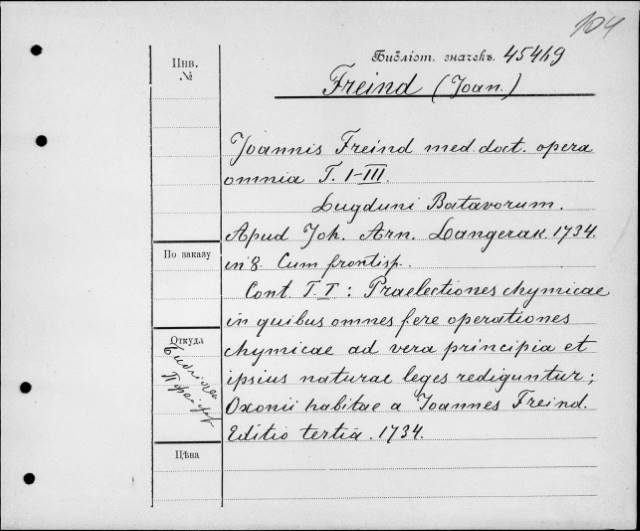 104
Инв.
№
Библіот. значекъ. 45449
Freind (Joan.)
Joannis Freind med. doct. opera
omnia T. I-III.
Lugduni Batavorum.
Apud Joh. Arn. Langerak. 1734.
in 8. Cum frontisp.
По заказу
Cont. T. I: Praelectiones chymicae
in quibus omnes fere operationes
Откуда
chymicae ad vera principia et
ipsius naturae leges rediguntur;
Oxonii habitae a Joannes Freind.
Editio tertia. 1734.
Цѣна